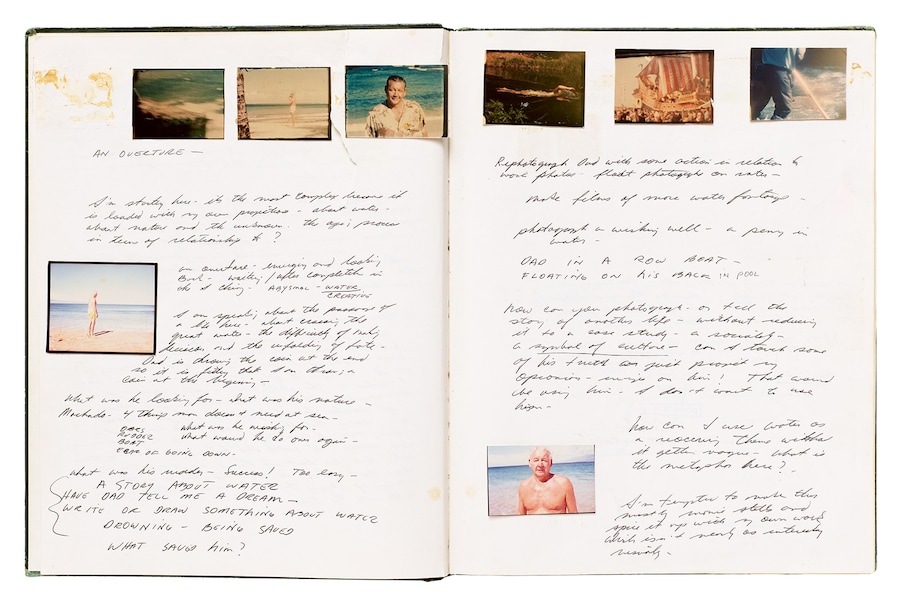 AN OVERTURE —
I'm starting here - it's the most complex because it
is loaded with my own projections - about water -
about nature and the unknown. The aging process
in terms of relationship to ?
an overture - emerging and looking
Back - writing / after completion in
ABYSMAL - WATER
CREATIVE
I am speaking about the passions of
a life here - about crossing the
great water - the difficulty of making
decisions and the unfolding of fate -
Dad is throwing the coin at the end
so it is fitting that I am throwing a
coin at the beginning —
What was he looking for - what was his nature —
Machado - 4 things man doesn't need at sea -
OARS what was he wishing for -
RUDDER what would he do over again -
BOAT
FEAR OF GOING DOWN -
What was his - Success! Too easy -
A STORY ABOUT WATER
HAVE DAD TELL ME A DREAM —
WRITE OR DRAW SOMETHING ABOUT WATER
DROWNING - BEING SAVED
WHAT SAVED him?
Rephotograph Dad with some action in relation to
work photos - float photographs on water —
Make films of more water footage -
photograph a wishing well - a penny in
water -
DAD IN A ROW BOAT -
FLOATING ON his BACK IN POOL
How can you photograph - or tell the
story of another life - without reducing
it to a case study - a sociology -
a symbol of culture - can I touch some
of his truth or just project my
opinions - on him! That would
be using him. I don't want to use
him -
How can I use water as
a recurring theme without
it getting vague - what is
the metaphor here? -
I'm tempted to make this
mostly movie stills and
spice it up with my own work
which isn't nearly as interesting
visually -